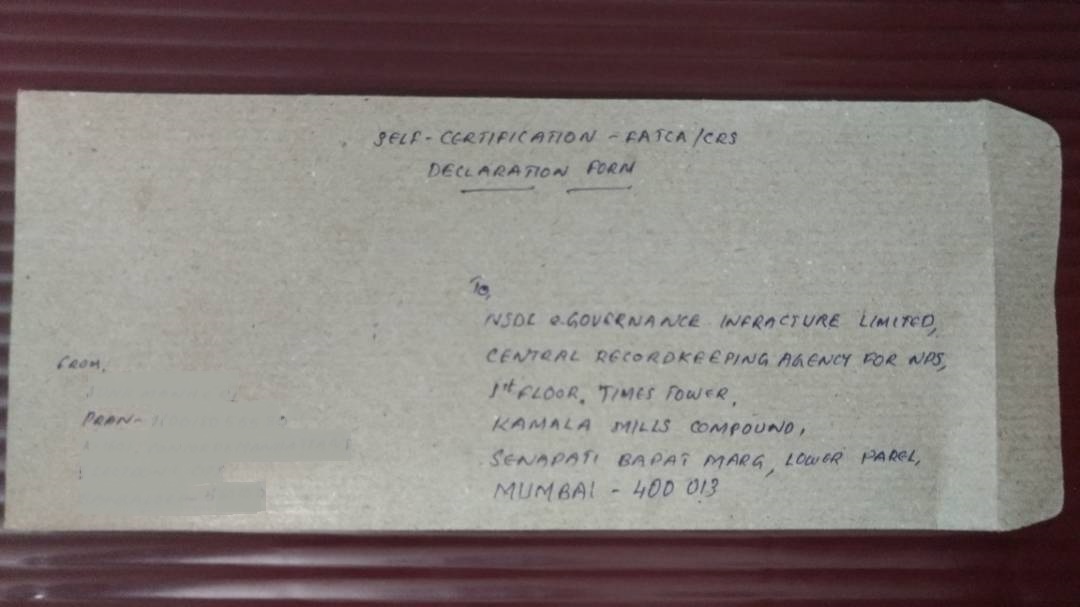 SELF-CERTIFICATION - FATCA/CRS
DECLARATION FORM
To,
NSDL e.GOVERNANCE INFRACTURE LIMITED,
CENTRAL RECORDKEEPING AGENCY FOR NPS,
1st FLOOR, TIMES TOWER,
KAMALA MILLS COMPOUND,
SENAPATI BAPAT MARG, LOWER PAREL,
MUMBAI - 400 013
FROM,
PRAN-